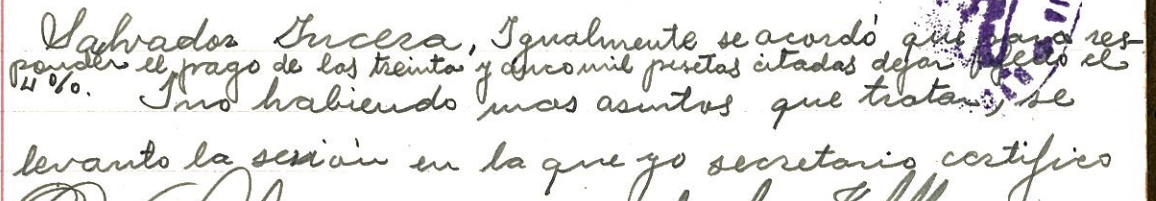 Salvador Incera, Igualmente se acordó que para res-
ponder el pago de las treinta y cinco mil pesetas citadas dejar afecto el
4%.
I no habiendo mas asuntos que tratar, se
levanto la sesión en la que yo secretario certifico